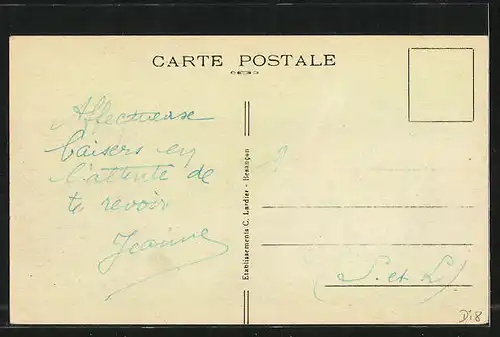 CARTE POSTALE
Affectueuse
baisers en
l'attente de
te revoir
Jeanne
Etablissements C. Lardier - Besançon
(S. et L.)
Di8